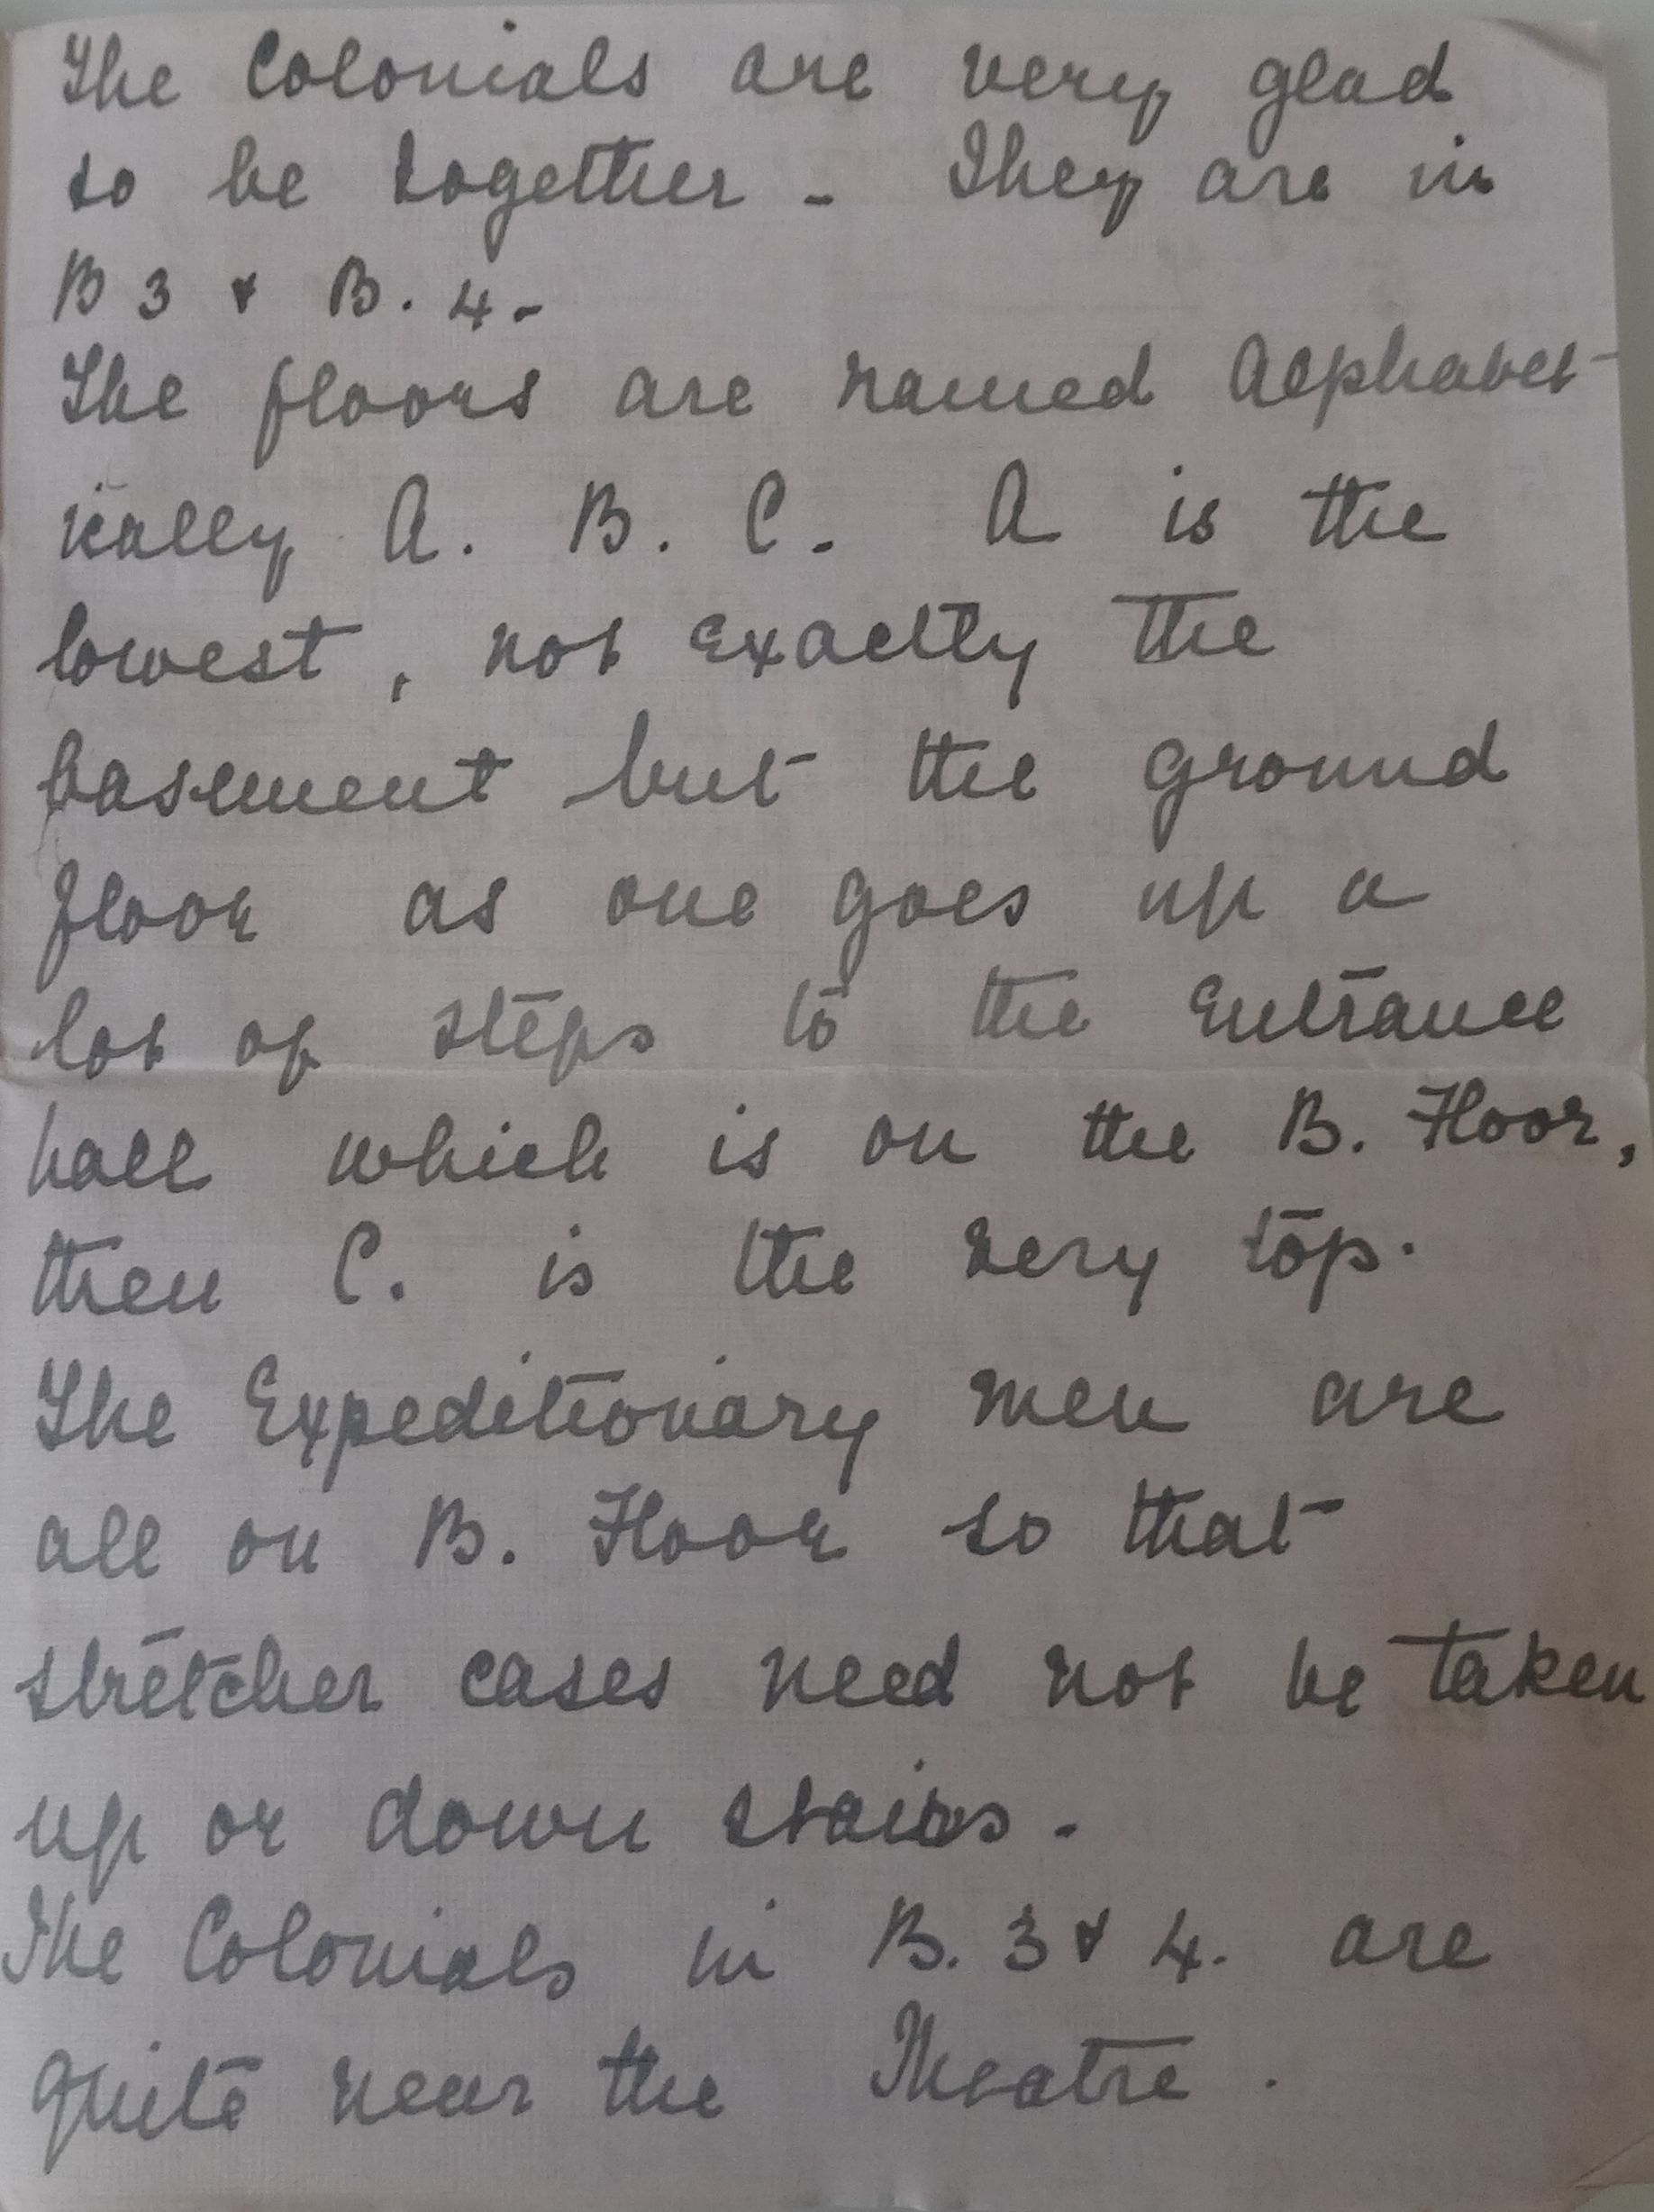 The Colonials are very glad
to be together - They are in
B 3 & B. 4 -
The floors are named Alphabet-
ically A. B. C. A is the
lowest, not exactly the
basement but the ground
floor as one goes up a
lot of steps to the Entrance
hall which is on the B. Floor,
then C. is the very top.
The Expeditionary men are
all on B. Floor so that
stretcher cases need not be taken
up or down stairs -
The Colonials in B. 3 & 4. are
quite near the Theatre.